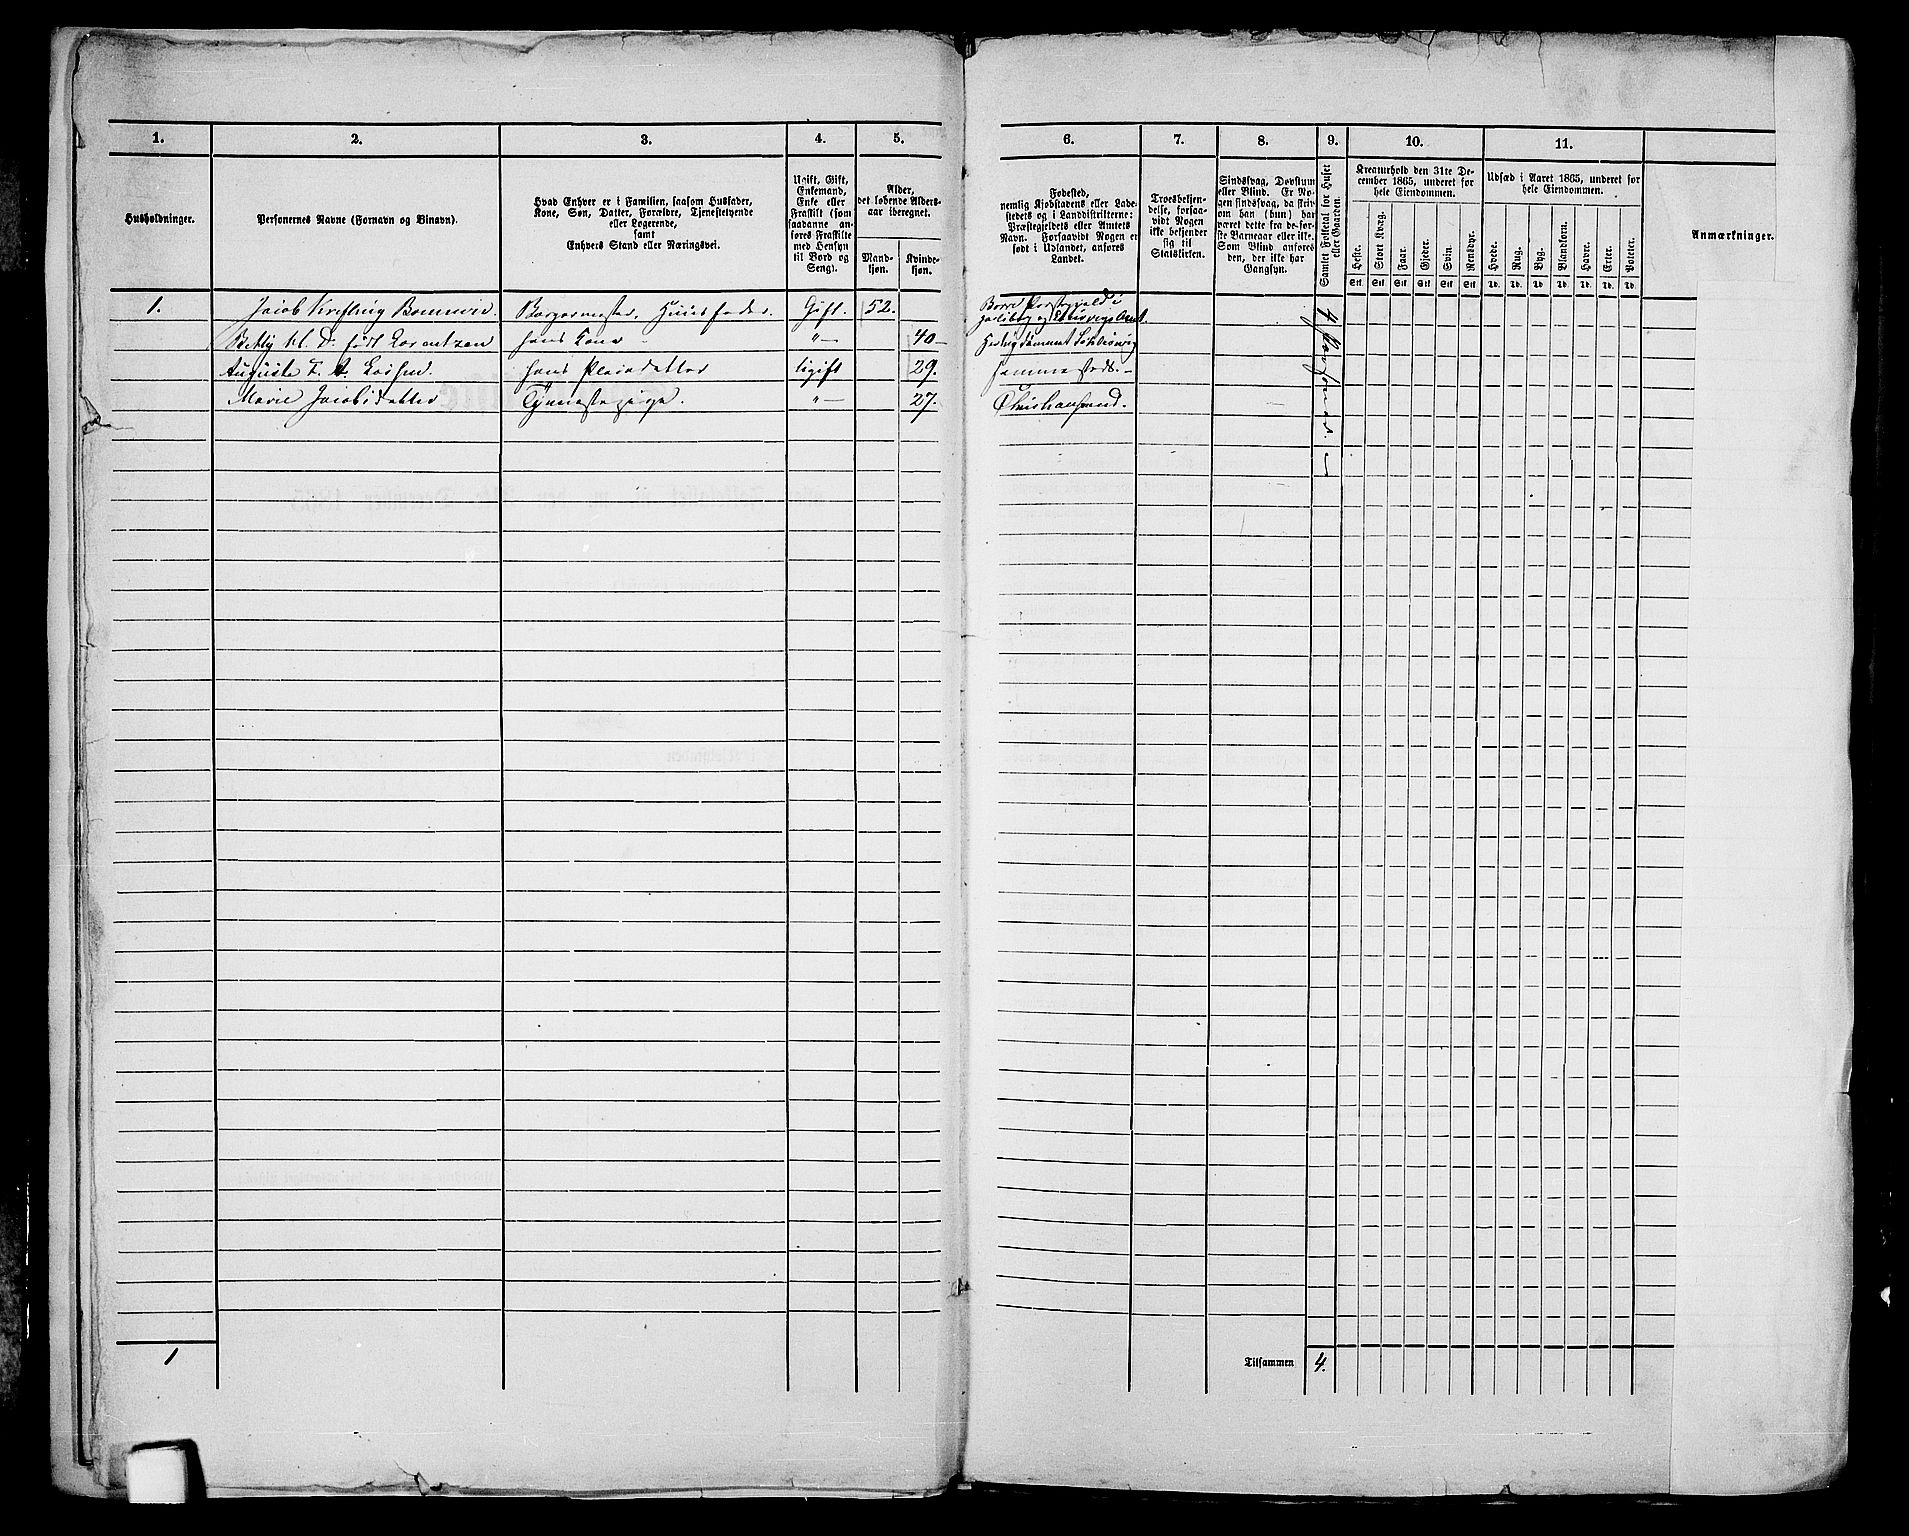 1. 2. 3. 4. 5. 6. 7. 8. 9. 10. 11.
Husholdninger.
Personernes Navne (Fornavn og Binavn).
Hvad Enhver er i Familien, saasom Husfader,
Kone, Søn, Datter, Forældre, Tjenestetyende
eller Logerende,
samt
Enhvers Stand eller Næringsvei.
Ugift, Gift,
Enkemand,
Enke eller
Fraskilt (som
saadanne an-
føres Fraskilte
med Hensyn
til Bord og
Seng).
Alder,
det løbende Alders-
aar iberegnet.
Mand-
kjøn.
Kvinde-
kjøn.
Fødested,
nemlig Kjøbstadens eller Lade-
stedets og i Landdistrikterne:
Præstegjeldets eller Amtets
Navn. Forsaavidt Nogen er
født i Udlandet, anføres
Landet.
Troesbekjen-
delse, forsaa-
vidt Nogen
ikke bekjender
sig til
Statskirken.
Sindssvag, Døvstum
eller Blind. Er No-
gen sindssvag, da skriv
om han (hun) har
været dette fra de før-
ste Barneaar eller ikke.
Som Blind anføres
den, der ikke har
Gangsyn.
Samlet Folketal for Huset
eller Gaarden.
Kreaturhold den 31te De-
cember 1865, underet for
hele Eiendommen.
Heste. Stort Kvæg. Faar. Gjeder. Svin. Rensdyr.
Stk. Stk. Stk. Stk. Stk. Stk.
Udsæd i Aaret 1865, underet for
hele Eiendommen.
Hvede. Rug. Byg. Blandkorn. Havre. Erter. Poteter.
Td. Td. Td. Td. Td. Td. Td.
Anmærkninger.
1. Jacob Krefting Bonnevie. Borgermester, Huusfader. Gift. 52. Borre Præstegjeld i
Jarlsberg og Laurvigs Amt.
Betty født Lorentzen hans Kone "— 40 Hertugdømmet Schleswig
Auguste hans Pleiedatter Ugift 29. Sammesteds.
Marie Jacobsdatter Tjenestepige. "— 27. Christiansand.
4
1
Tilsammen 4.